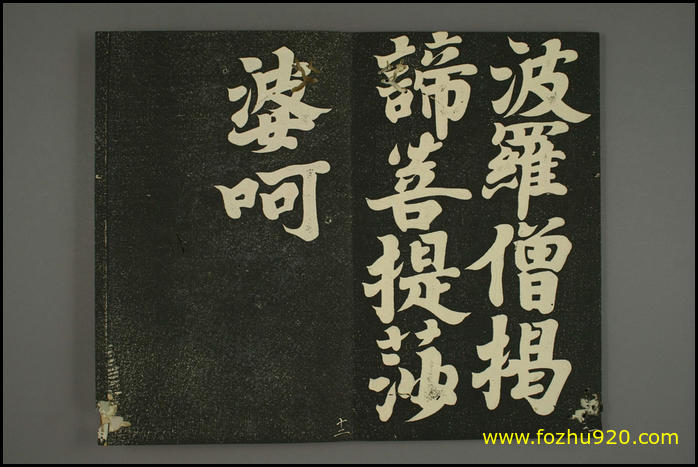 波羅僧揭
諦菩提莎
婆呵
十二
www.fozhu920.com